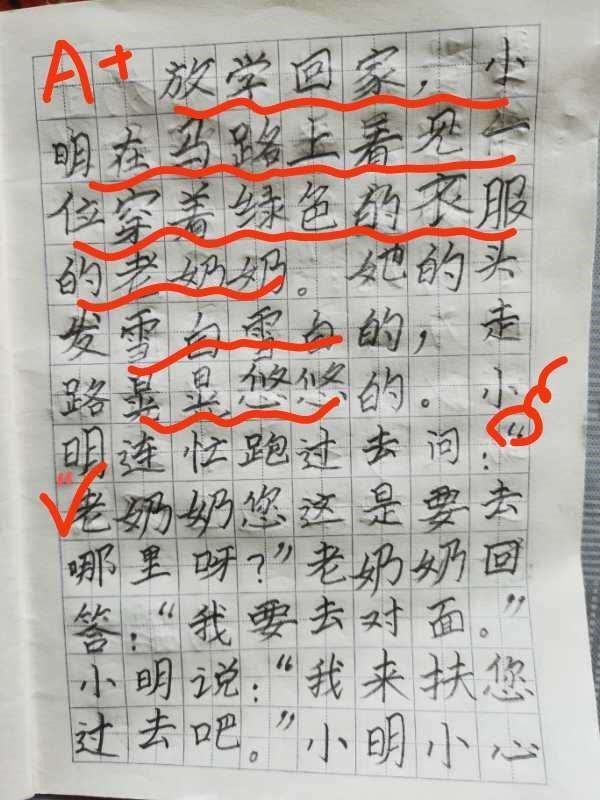 A+
放学回家，小
明在马路上着见一
位穿着绿色的衣服
的老奶奶。她的头
发雪白雪白的，走
路晃晃悠悠的。小
明连忙跑过去问：“
“老奶奶您这是要去
哪里呀？”老奶奶回
答：“我要去对面。”
小明说：“我来扶您
过去吧。”小明小心